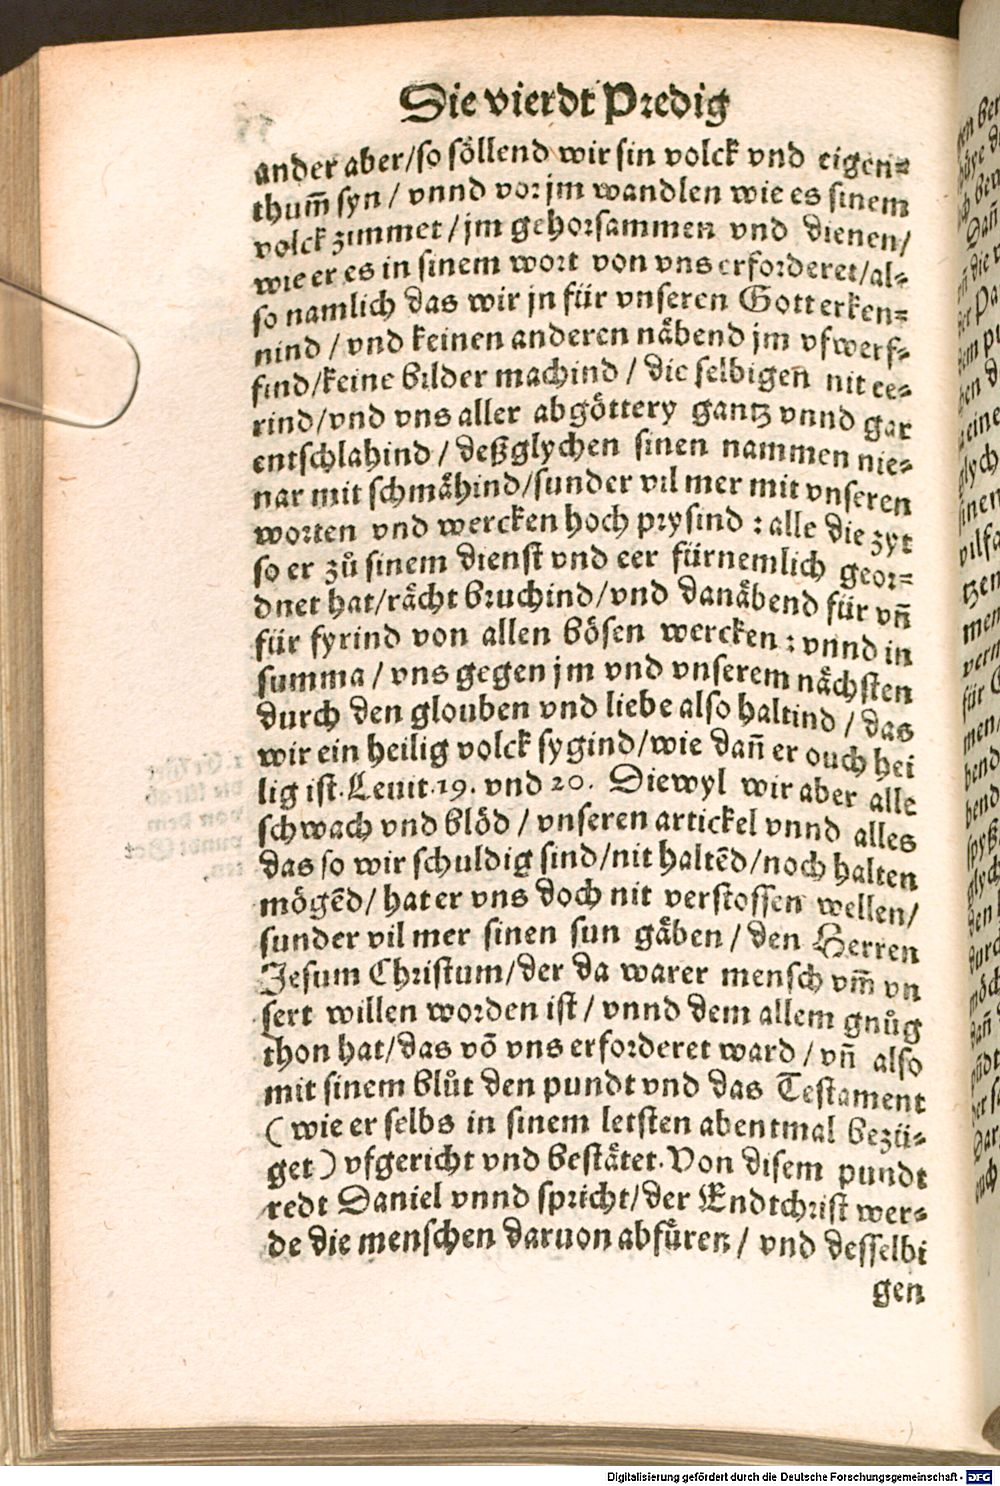 Die vierdt Predig
ander aber/so söllend wir sin volck vnd eigen=
thum̃ syn/ vnnd vor jm wandlen wie es sinem
volck zimmet/jm gehorsammen vnd dienen/
wie er es in sinem wort von vns erforderet/al=
so namlich das wir jn für vnseren Gott erken=
nind/vnd keinen anderen näbend jm vfwerf=
find/keine bilder machind/die selbigeñ nit ee=
rind/vnd vns aller abgöttery gantz vnnd gar
entschlahind/deßglychen sinen nammen nie=
nar mit schmähind/sunder vil mer mit vnseren
worten vnd wercken hoch prysind: alle die zyt
so er zů sinem dienst vnd eer fürnemlich geor=
dnet hat/rächt bruchind/vnd danäbend für vñ
für fyrind von allen bösen wercken: vnnd in
summa/vns gegen jm vnd vnserem nächsten
durch den glouben vnd liebe also haltind/das
wir ein heilig volck sygind/wie dañ er ouch hei
lig ist. Leuit. 19. vnd 20. Diewyl wir aber alle
schwach vnd blöd/vnseren artickel vnnd alles
das so wir schuldig sind/nit haltẽd/noch halten
mögẽd/hat er vns doch nit verstossen wellen/
sunder vil mer sinen sun gäben/den Herren
Jesum Christum/der da warer mensch vm̃ vn
sert willen worden ist/vnnd dem allem gnůg
thon hat/das võ vns erforderet ward/vñ also
mit sinem blůt den pundt vnd das Testament
(wie er selbs in sinem letsten abentmal bezü=
get) vfgericht vnd bestätet. Von disem pundt
redt Daniel vnnd spricht/der Endtchrist wer=
de die menschen daruon abfüren/vnd desselbi
gen
Digitalisierung gefördert durch die Deutsche Forschungsgemeinschaft - DFG